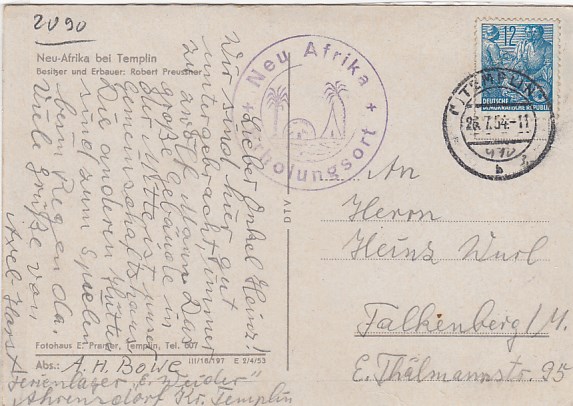 2090
Neu-Afrika bei Templin
Besitzer und Erbauer: Robert Preussner
Neu Afrika
Erholungsort
12
DEUTSCHE
DEMOKRATISCHE REPUBLIK
TEMPLIN
26.7.54-11
b
Lieber Onkel Heinz!
Wir sind hier gut
untergebracht, immer
zu zwölf Mann. Das
große Gebäude in
der Mitte ist unser
Gemeinschaftshaus
Die anderen Hütten
sind zum Spielen
beim Regen da.
Viele Grüße von
Axel-Horst
DTV
An
Herrn
Heinz Wurl
Falkenberg/M.
E. Thälmannstr. 95
Fotohaus E. Templin, Tel. 607
III/18/197 E 2/4/53
Abs.: A. H. Bowe
Ferienlager „E. Weider"
Ahrensdorf Kr. Templin